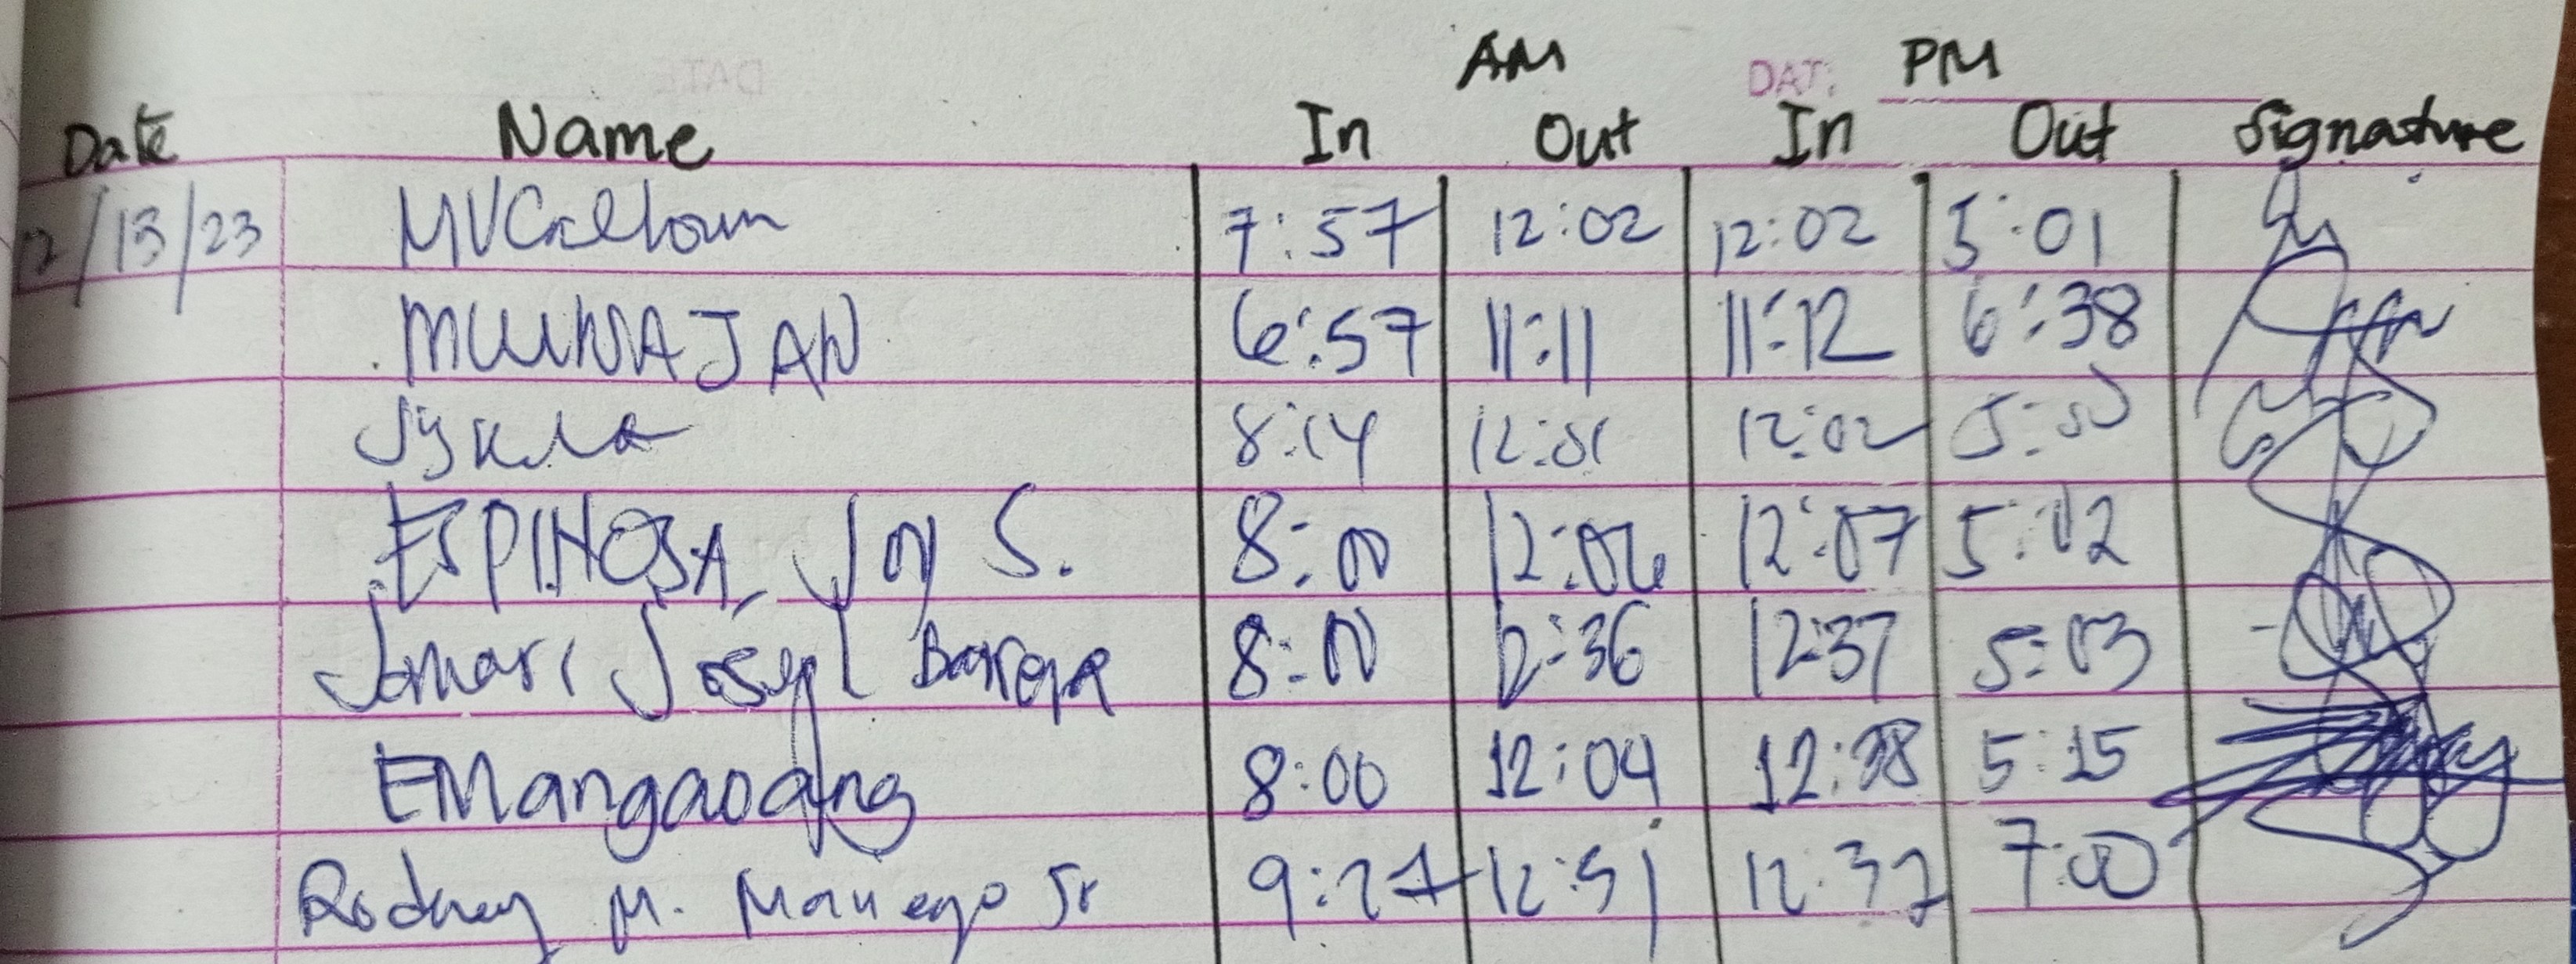 AM DAT: PM
Date Name In Out In Out Signature
12/13/23 MVCalhoun 7:57 12:02 12:02 5:01
JAN 6:57 11:11 11:12 6:38
8:14 12:01 12:02 5:00
ESPINOSA, Joy S. 8:00 12:06 12:07 5:02
Jomari Joseph 8:00 12:36 12:37 5:03
EMangaoang 8:00 12:04 12:38 5:15
Rodney M. Manuego Jr 9:27 12:31 12:32 7:00